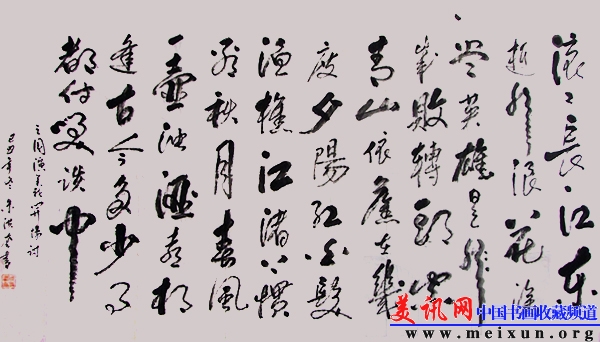 滚々长江东
逝水浪花淘
尽英雄是非
成敗轉頭空
青山依舊在幾
度夕陽红白髮
渔樵江渚上惯
看秋月春風
一壶浊酒喜相
逢古今多少事
都付笑谈中
三国演义开篇词
己丑年冬
美讯网 中国书画收藏频道
www.meixun.org